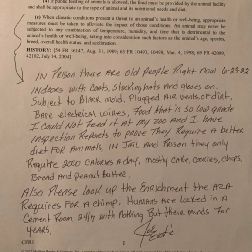 (2) A facility is allowed, the food must be provided to the animal
shall be appropriate to the type of animal and its nutritional needs and diet.
(e) When climatic conditions present a threat to an animal's health or well-being, appropriate
measures must be taken to alleviate the impact of those conditions. An animal may never be
subjected to any combination of temperature, humidity, and time that is detrimental to the
animal's health or well-being, taking into consideration such factors as the animal's age, species,
breed, overall health status, and acclimation.
HISTORY: [54 FR 36147, Aug. 31, 1989; 63 FR 10493, 10498, Mar. 4, 1998; 69 FR 42089,
42102, July 14, 2004]
IN Prison there are old people Right now 6-29-22
INDOORS with Coats, Stocking hats and gloves on.
Subject to Black mold. Plugged AIR vents, of dirt,
Bare electrical wires, Food that is so low grade
I could Not feed it at my zoo and I have
inspection Reports to prove They Require a better
diet For Animals. IN Jail and Prison they only
Require 2000 Calories a day, mostly Cake, cookies, chips,
Bread and Peanut butter.
Also Please look up the Enrichment the AZA
Requires For a chimp. Humans are locked in a
Cement Room 24/7 with Nothing But there minds For
YEARS.
Joe
Exotic
1